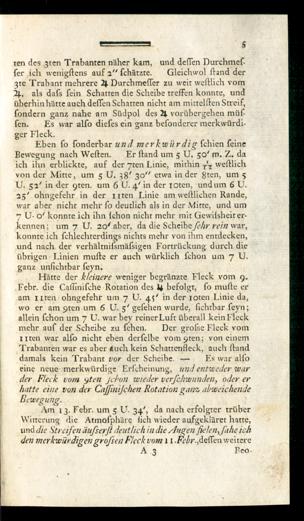 5
ten des 3ten Trabanten näher kam, und dessen Durchmes-
ser ich wenigstens auf 2″ schätzte. Gleichwol stand der
3te Trabant mehrere ♃ Durchmesser zu weit westlich vom
♃, als dass sein Schatten die Scheibe treffen konnte, und
überhin hätte auch dessen Schatten nicht am mittelsten Streif,
sondern ganz nahe am Südpol des ♃ vorübergehen müs-
sen. Es war also dieses ein ganz besonderer merkwürdi-
ger Fleck.
Eben so sonderbar und merkwürdig schien seine
Bewegung nach Westen. Er stand um 5 U. 50′. M. Z. da
ich ihn erblickte, auf der 7ten Linie, mithin westlich
von der Mitte, um 5 U. 38′ 30″ etwa in der 8ten, um 5
U. 52′ in der 9ten. um 6 U. 4′ in der 10ten, und um 6 U.
25′ ohngefehr in der 11ten Linie am westlichen Rande,
war aber nicht mehr so deutlich als in der Mitte, und um
7 U· 0′ konnte ich ihn schon nicht mehr mit Gewisheit er-
kennen; um 7 U. 20′ aber, da die Scheibe sehr rein war,
konnte ich schlechterdings nichts mehr von ihm entdecken,
und nach der verhältnismäsigen Fortrückung durch die
übrigen Linien musste er auch würklich schon um 7 U.
ganz unsichtbar seyn.
Hätte der kleinere weniger begränzte Fleck vom 9.
Febr. die Cassinische Rotation des ♃ befolgt, so musste er
am 11ten ohngefehr um 7 U. 45′ in der 10ten Linie da,
wo er am 9ten um 6 U. 5′ gesehen wurde, sichtbar seyn;
allein schon um 7 U. war bey reiner Luft überall kein Fleck
mehr auf der Scheibe zu sehen. Der grosse Fleck vom
11ten war also nicht eben derselbe vom 9ten; von einem
Trabanten war es aber auch kein Schattenfleck, auch stand
damals kein Trabant vor der Scheibe. — Es war also
eine neue merkwürdige Erscheinung, und entweder war
der Fleck vom 9ten schon wieder verschwunden, oder er
hatte eine von der Cassinischen Rotation ganz abweichende
Bewegung.
Am 13. Febr. um 5 U. 34′, da nach erfolgter trüber
Witterung die Atmosphäre sich wieder aufgekläret hatte,
und die Streifen äusserst deutlich in die Augen fielen, sahe ich
den merkwürdigen grossen Fleck vom 11. Febr., dessen weitere
A 3
Beo-